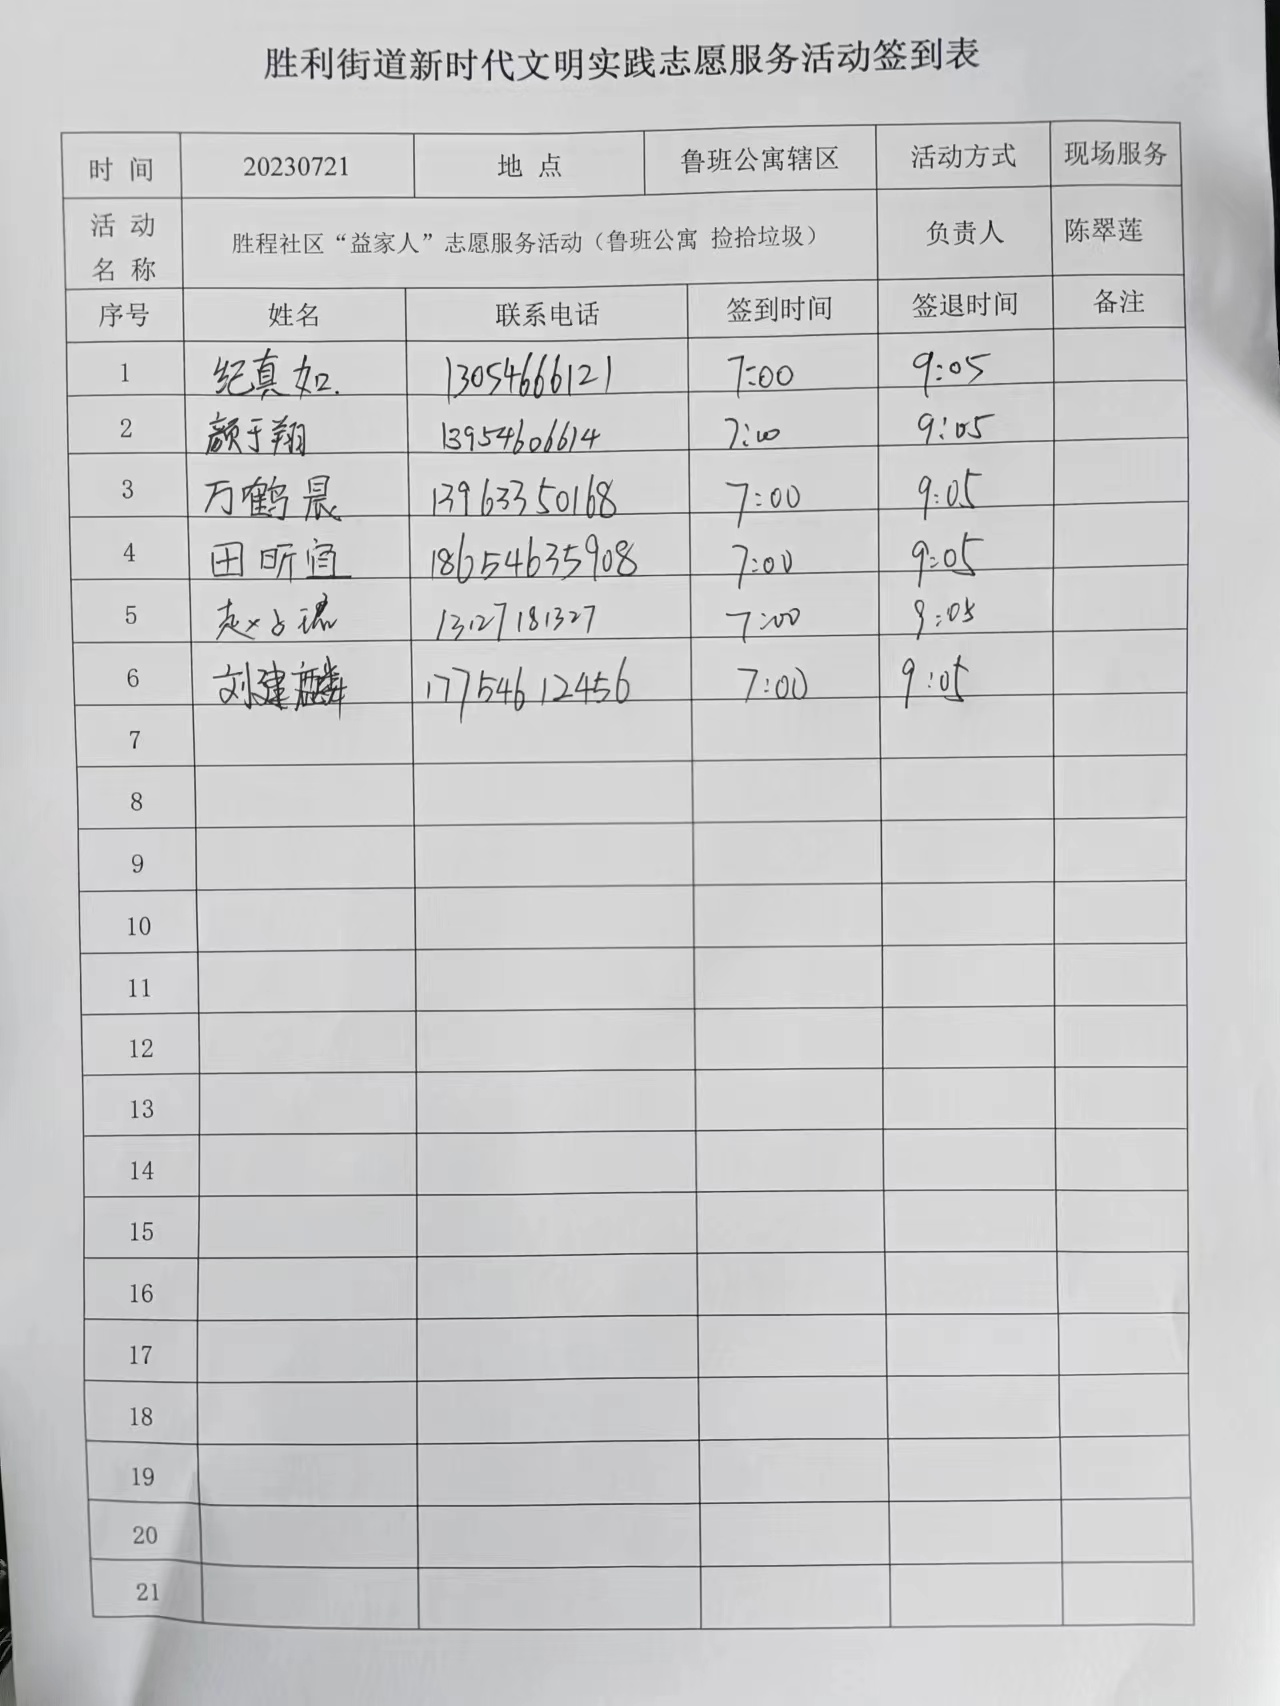 胜利街道新时代文明实践志愿服务活动签到表
时 间 20230721 地 点 鲁班公寓辖区 活动方式 现场服务
活 动 名 称 胜程社区“益家人”志愿服务活动（鲁班公寓 捡拾垃圾） 负责人 陈翠莲
序号 姓名 联系电话 签到时间 签退时间 备注
1 纪真如. 13054666121 7:00 9:05
2 颜于翔 13954606614 7:00 9:05
3 万鹤晨 13963350168 7:00 9:05
4 田昕宜 18654635908 7:00 9:05
5 赵 13127181327 7:00 9:05
6 刘建麟 17754612456 7:00 9:05
7
8
9
10
11
12
13
14
15
16
17
18
19
20
21